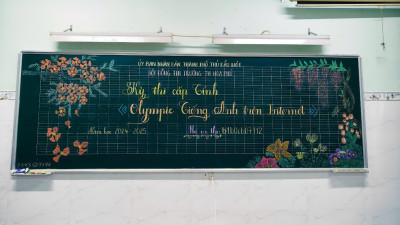 ỦY BAN NHÂN DÂN THÀNH PHỐ THỦ DẦU MỘT
HỘI ĐỒNG THI TRƯỜNG TH HÒA PHÚ
Kỳ thi cấp Tỉnh
Olympic Tiếng Anh trên Internet
Năm học 2024 - 2025
Mã ca thi: